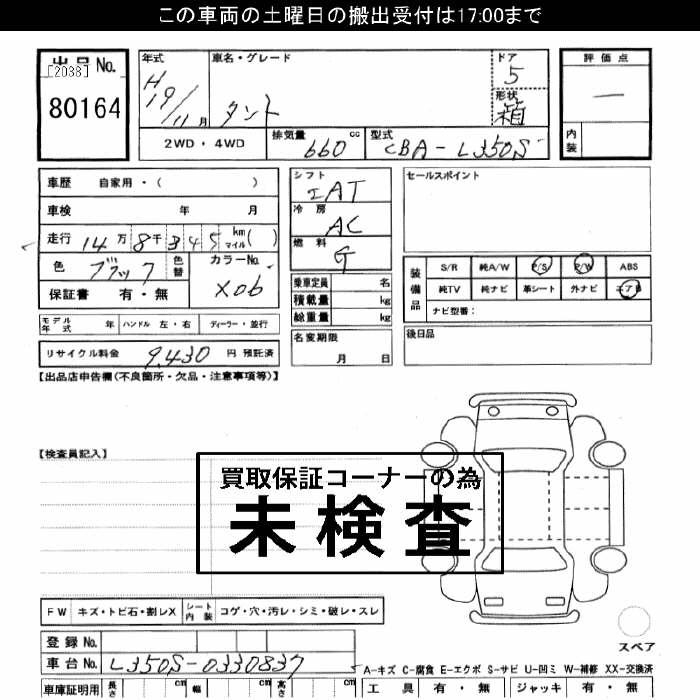 この車両の土曜日の搬出受付は17:00まで
出品No.
[2038]
80164
年式
H19/11月
車名・グレード
タント
ドア
5
形状
箱
評価点
一
内装
2WD・4WD
排気量
660 cc
型式
CBA-L350S
車歴 自家用・( )
車検 年 月
走行 14万8千345 km マイル( )
色 ブラック
色替
カラーNo.
X06
保証書 有・無
シフト
IAT
冷房
AC
燃料
G
セールスポイント
乗車定員 名
積載量 kg
総重量 kg
装備品
S/R 純A/W P/S P/W ABS
純TV 純ナビ 革シート 外ナビ エアB
ナビ型番:
モデル年式 年 ハンドル 左・右 ディーラー・並行
名変期限
月 日
後日品
リサイクル料金 9,430 円 預託済
【出品店申告欄(不良個所・欠品・注意事項等)】
【検査員記入】
買取保証コーナーの為
未検査
FW キズ・トビ石・割レX シート内装 コゲ・穴・汚レ・シミ・破レ・スレ
登録No.
スペア
車台No. L350S-0330837
A-キズ C-腐食 E-エクボ S-サビ U-凹ミ W-補修 XX-交換済
車庫証明用 長さ cm 幅 cm 高さ cm
工具 有・無 ジャッキ 有・無